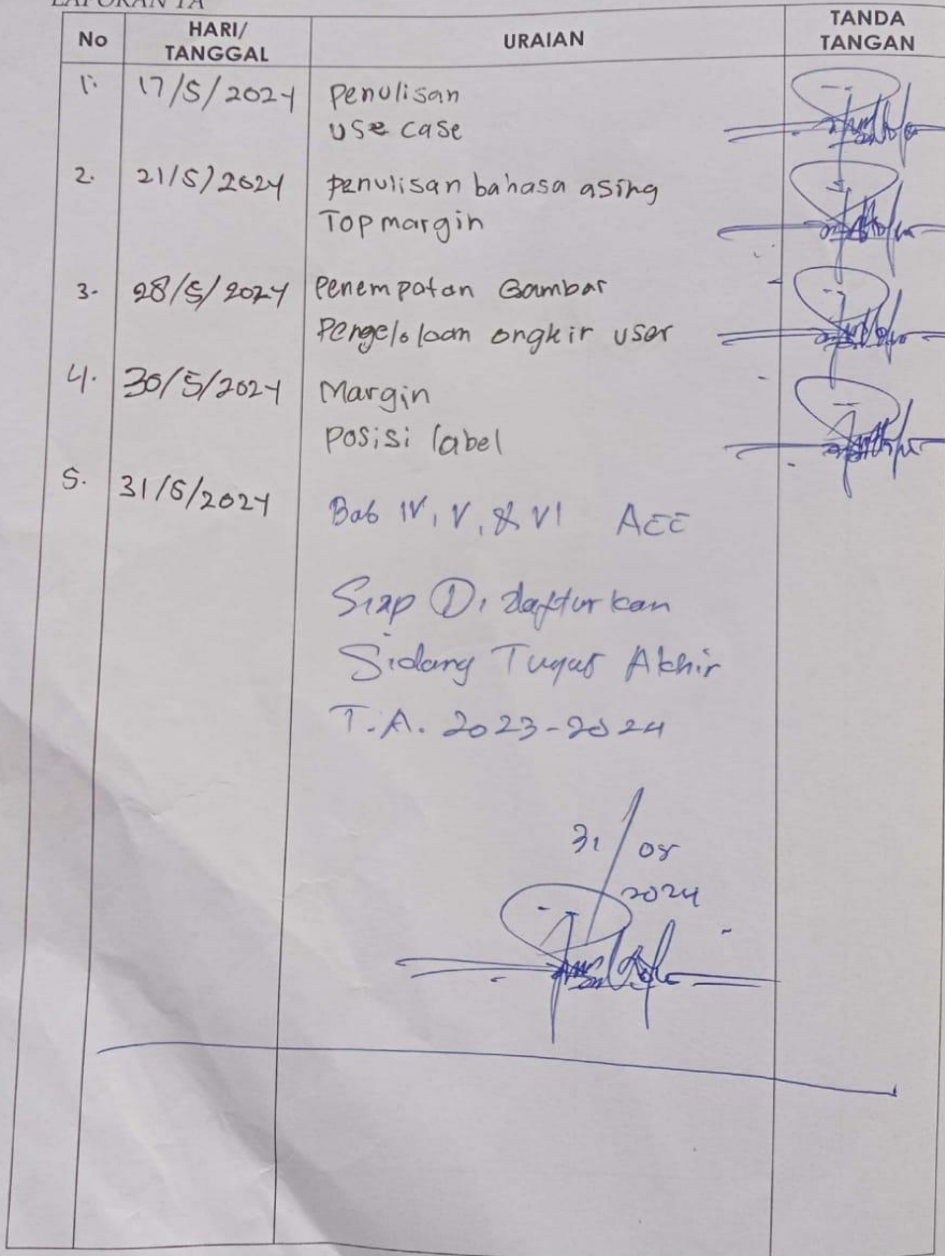 LAPORAN TA
No HARI/ TANGGAL URAIAN TANDA TANGAN
1. 17/5/2024 Penulisan
use case
2. 21/5/2024 penulisan bahasa asing
Top margin
3. 28/5/2024 Penempatan Gambar
Pengelolaan ongkir user
4. 30/5/2024 Margin
posisi label
5. 31/5/2024
Bab IV, V, & VI ACC
Siap Didaftarkan
Sidang Tugas Akhir
T.A. 2023-2024
31/05
2024